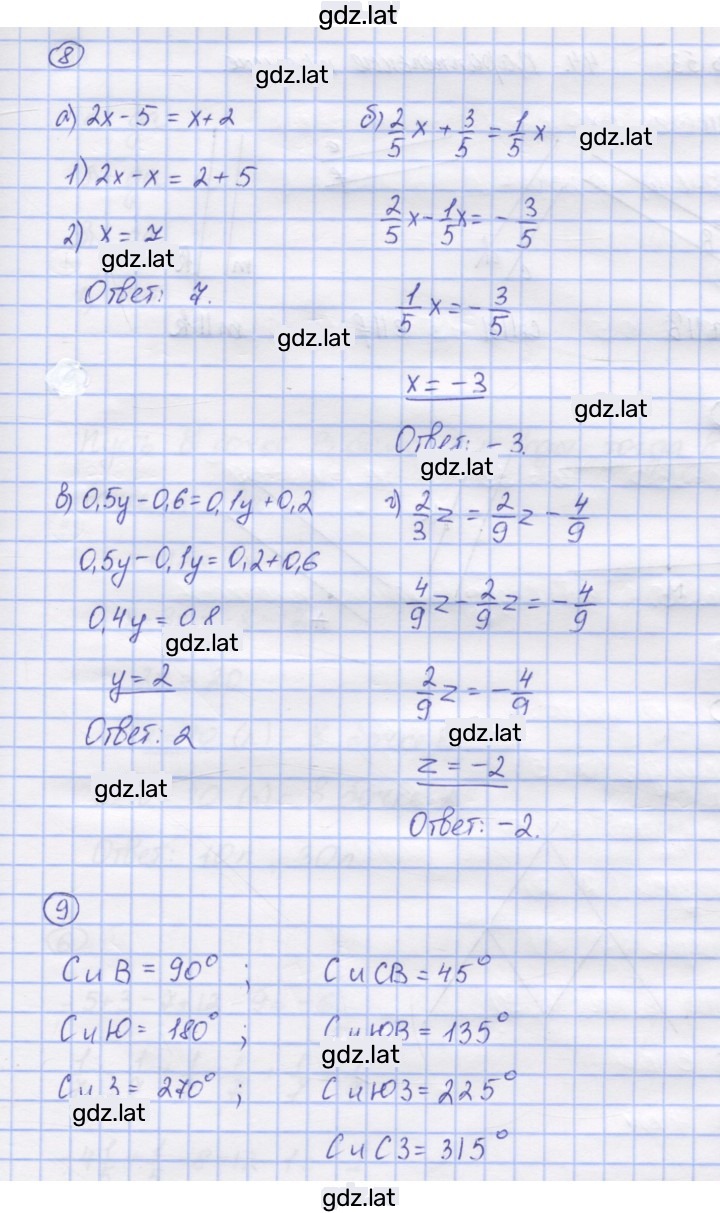 gdz.lat
8
gdz.lat
а) 2x - 5 = x + 2
1) 2x - x = 2 + 5
2) x = 7
gdz.lat
Ответ: 7.
б) 2/5 x + 3/5 = 1/5 x
gdz.lat
2/5 x - 1/5 x = - 3/5
1/5 x = - 3/5
gdz.lat
x = -3
gdz.lat
Ответ: -3.
gdz.lat
в) 0,5y - 0,6 = 0,1y + 0,2
0,5y - 0,1y = 0,2 + 0,6
0,4y = 0,8
gdz.lat
y = 2
Ответ: 2
gdz.lat
г) 2/3 z = 2/9 z - 4/9
4/9 z - 2/9 z = - 4/9
2/9 z = - 4/9
gdz.lat
z = -2
Ответ: -2.
9
С и В = 90° ; С и СВ = 45°
С и Ю = 180° ; С и ЮВ = 135°
gdz.lat
С и З = 270° ; С и ЮЗ = 225°
gdz.lat
С и СЗ = 315°
gdz.lat